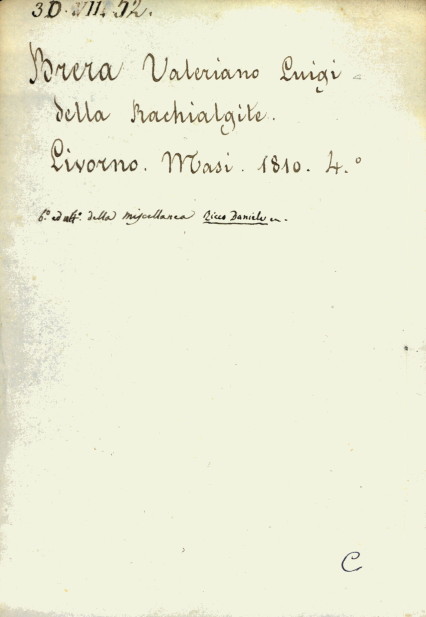 3D.VII.52.
Brera Valeriano Luigi
della Rachialgite.
Livorno. Masi. 1810. 4.°
6.° ed ult.° della Miscellanea Ricco Daniele
C